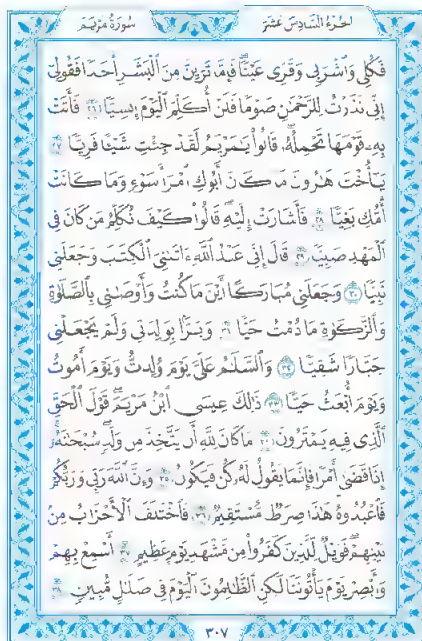 سُورَةُ مَرْيَمَ الجزء السَّادِسَ عَشَرَ
فَكُلِى وَٱشْرَبِى وَقَرِّى عَيْنًا فَإِمَّا تَرَيِنَّ مِنَ ٱلْبَشَرِ أَحَدًا فَقُولِىٓ
إِنِّى نَذَرْتُ لِلرَّحْمَٰنِ صَوْمًا فَلَنْ أُكَلِّمَ ٱلْيَوْمَ إِنسِيًّا ٢٦ فَأَتَتْ
بِهِۦ قَوْمَهَا تَحْمِلُهُۥ قَالُوا۟ يَٰمَرْيَمُ لَقَدْ جِئْتِ شَيْـًٔا فَرِيًّا ٢٧
يَٰٓأُخْتَ هَٰرُونَ مَا كَانَ أَبُوكِ ٱمْرَأَ سَوْءٍ وَمَا كَانَتْ
أُمُّكِ بَغِيًّا ٢٨ فَأَشَارَتْ إِلَيْهِ قَالُوا۟ كَيْفَ نُكَلِّمُ مَن كَانَ فِى
ٱلْمَهْدِ صَبِيًّا ٢٩ قَالَ إِنِّى عَبْدُ ٱللَّهِ ءَاتَىٰنِىَ ٱلْكِتَٰبَ وَجَعَلَنِى
نَبِيًّا ٣٠ وَجَعَلَنِى مُبَارَكًا أَيْنَ مَا كُنتُ وَأَوْصَٰنِى بِٱلصَّلَوٰةِ
وَٱلزَّكَوٰةِ مَا دُمْتُ حَيًّا ٣١ وَبَرًّۢا بِوَٰلِدَتِى وَلَمْ يَجْعَلْنِى
جَبَّارًا شَقِيًّا ٣٢ وَٱلسَّلَٰمُ عَلَىَّ يَوْمَ وُلِدتُّ وَيَوْمَ أَمُوتُ
وَيَوْمَ أُبْعَثُ حَيًّا ٣٣ ذَٰلِكَ عِيسَى ٱبْنُ مَرْيَمَ قَوْلَ ٱلْحَقِّ
ٱلَّذِى فِيهِ يَمْتَرُونَ ٣٤ مَا كَانَ لِلَّهِ أَن يَتَّخِذَ مِن وَلَدٍ سُبْحَٰنَهُۥٓ
إِذَا قَضَىٰٓ أَمْرًا فَإِنَّمَا يَقُولُ لَهُۥ كُن فَيَكُونُ ٣٥ وَإِنَّ ٱللَّهَ رَبِّى وَرَبُّكُمْ
فَٱعْبُدُوهُ هَٰذَا صِرَٰطٌ مُّسْتَقِيمٌ ٣٦ فَٱخْتَلَفَ ٱلْأَحْزَابُ مِنۢ
بَيْنِهِمْ فَوَيْلٌ لِّلَّذِينَ كَفَرُوا۟ مِن مَّشْهَدِ يَوْمٍ عَظِيمٍ ٣٧ أَسْمِعْ بِهِمْ
وَأَبْصِرْ يَوْمَ يَأْتُونَنَا لَٰكِنِ ٱلظَّٰلِمُونَ ٱلْيَوْمَ فِى ضَلَٰلٍ مُّبِينٍ ٣٨
٣٠٧